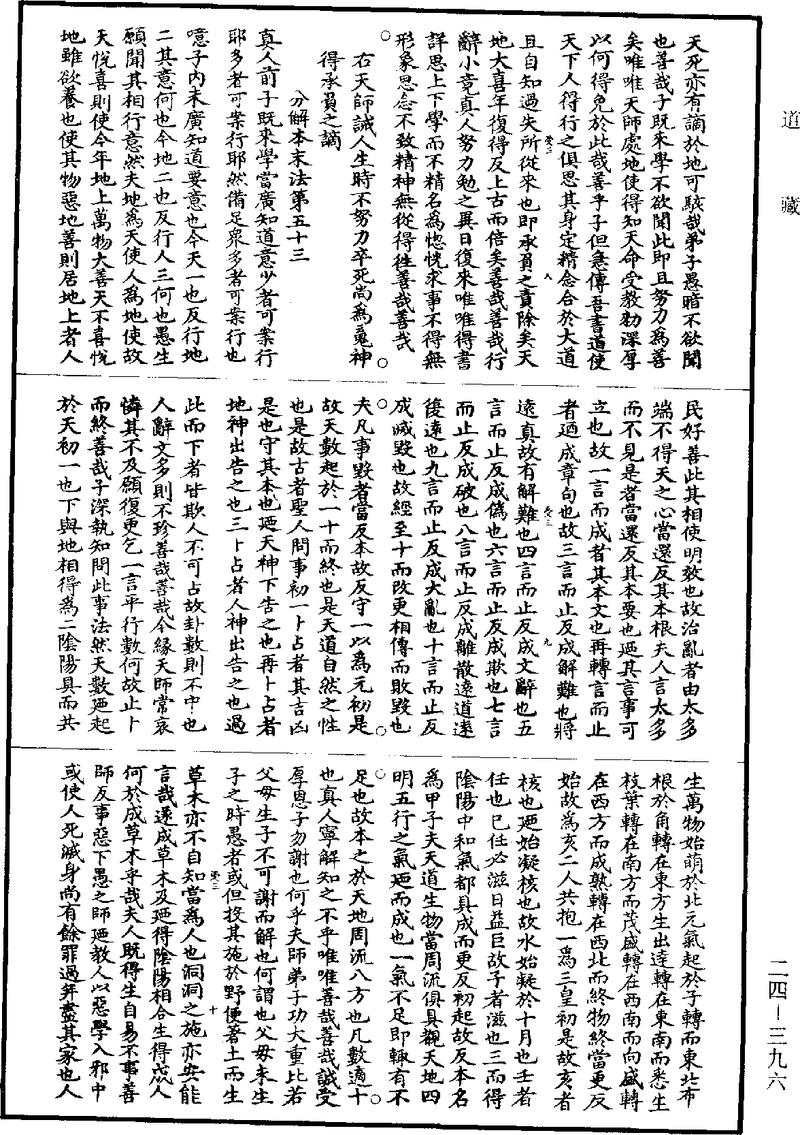 道藏
天死亦有謫於地可駭哉弟子愚暗不欲聞
也善哉子既来學不欲聞此即且努力為善
矣唯唯天師處地使得知天命受教勑深厚
以何得免於此哉善乎子但急傳吾書道使
天下人得行之俱思其身定精念合於大道
且自知過失所從来也即承負之責除矣天
地大喜年復得反上古而倍矣善哉善哉行
辭小竟真人努力勉之異日復来唯唯得書
詳思上下學而不精名為惚恍求事不得無
形象思念不致精神無從得徃善哉善哉
右天師誡人生時不努力卒死尚為鬼神
得承負之謫
分解本末法第五十三
真人前子既来學當廣知道意少者可案行
耶多者可案行耶然備足衆多者可案行也
噫子内未廣知道要意也今天一也反行地
二其意何也今地二也反行人三何也愚生
願聞其相行意然夫地為天使人為地使故
天悅喜則使今年地上萬物大善天不喜悅
地雖欲養也使其物惡地善則居地上者人
民好善此其相使明效也故治亂者由太多
端不得天之心當還反其本根夫人言太多
而不見是者當還反其本要也廼其言事可
立也故一言而成者其本文也再轉言而止
者廼成章句也故三言而止反成解難也將
遠真故有解難也四言而止反成文辭也五
言而止反成偽也六言而止反成欺也七言
而止反成破也八言而止反成離散遠道遠
復遠也九言而止反成大亂也十言而止反
成滅毀也故經至十而改更相傳而敗毀也
夫凡事毀者當反本故反守一以為元初是
故天數起於一十而終也是天道自然之性
也是故古者聖人問事初一卜占者其吉凶
是也守其本也廼天神下告之也再卜占者
地神出告之也三卜占者人神出告之也過
此而下者皆欺人不可占故卦數則不中也
人辭文多則不珍善哉善哉今緣天師常哀
憐其不及願復更乞一言平行數何故止卜
而終善哉子深執知問此事法然天數廼起
於天初一也下與地相得為二陰陽具而共
生萬物始萌於北元氣起於子轉而東北布
根於角轉在東方生出達轉在東南而悉生
枝葉轉在南方而茂盛轉在西南而向盛轉
在西方而成熟轉在西北而終物終當更反
始故為亥二人共抱一為三皇初是故亥者
核也廼始凝核也故水始凝於十月也壬者
任也已任必滋日益巨故子者滋也三而得
陰陽中和氣都具成而更反初起故反本名
為甲子夫天道生物當周流俱具覩天地四
明五行之氣廼而成也一氣不足即輒有不
足也故本之於天地周流八方也凡數適十
也真人寧解知之不乎唯唯善哉善哉誠受
厚恩子勿謝也何乎夫師弟子功大重比若
父母生子不可謝而解也何謂也父母未生
子之時愚者或但投其施於野便著土而生
草木亦不自知當為人也洞洞之施亦安能
言哉遂成草木及廼得陰陽相合生得成人
何於成草木乎哉夫人既得生自易不事善
師反事惡下愚之師廼教人以惡學入邪中
或使人死滅身尚有餘罪過并盡其家也人
二四－三九六